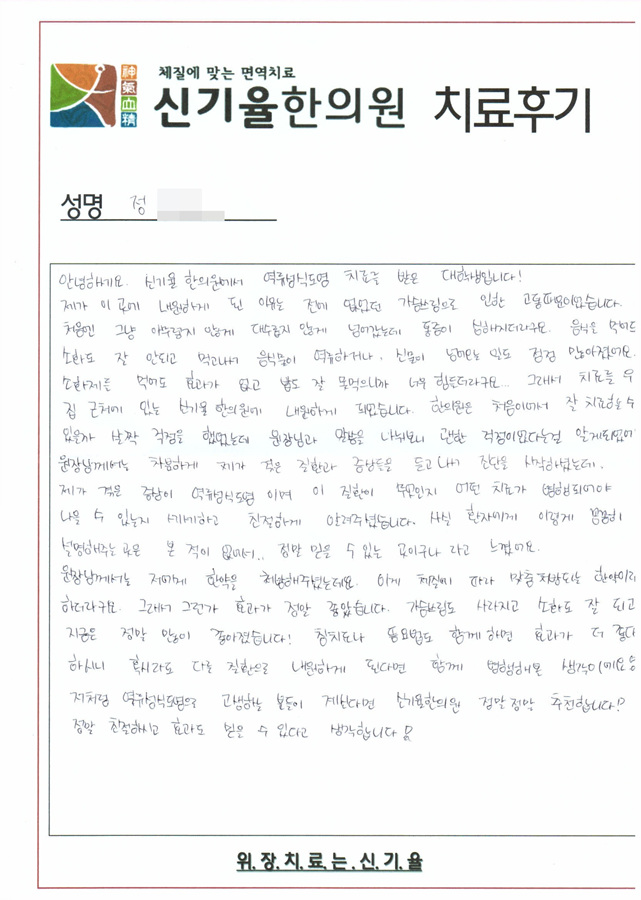 神氣血精
체질에 맞는 면역치료
신기율한의원 치료후기
성명 정
안녕하세요. 신기율 한의원에서 역류성식도염 치료를 받은 대학생입니다!
제가 이 곳에 내원하게 된 이유는 전에 없었던 가슴쓰림으로 인한 고통때문이었습니다.
처음엔 그냥 아무렇지 않게 대수롭지 않게 넘어갔는데 통증이 심해지더라구요. 음식을 먹어도
소화도 잘 안되고 먹고나서 음식물이 역류하거나, 신물이 넘어오는 일도 점점 많아졌어요.
소화제를 먹어도 효과가 없고 밥도 잘 못먹으니까 너무 힘들더라구요... 그래서 치료를 우
집 근처에 있는 신기율 한의원에 내원하게 되었습니다. 한의원은 처음이어서 잘 치료할 수
있을까 살짝 걱정을 했었는데 원장님과 말씀을 나눠보니 괜한 걱정이었다는걸 알게되었어
원장님께서는 차분하게 제가 적은 질환과 증상들을 듣고 나서 진단을 시작하셨는데.
제가 겪은 증상이 역류성식도염 이며 이 질환이 무엇인지 어떤 치료가 병행되어야
나을 수 있는지 세세하고 친절하게 알려주셨습니다. 사실 환자에게 이렇게 꼼꼼히
설명해주는 곳은 본 적이 없어서.. 정말 믿을 수 있는 곳이구나 라고 느꼈어요.
원장님께서는 저에게 한약을 처방해주셨는데요. 이게 체질에 따라 맞춤처방되는 한약이라
하더라구요. 그래서 그런가 효과가 정말 좋았습니다. 가슴쓰림도 사라지고 소화도 잘 되고
지금은 정말 많이 좋아졌습니다! 침치료나 약침요법도 함께 하면 효과가 더 좋다
하시니 혹시라도 다른 질환으로 내원하게 된다면 함께 병행해볼 생각이에요
저처럼 역류성식도염으로 고생하는 분들이 계신다면 신기율한의원 정말정말 추천합니다!
정말 친절하시고 효과도 믿을 수 있다고 생각합니다
위.장.치.료.는.신.기.율